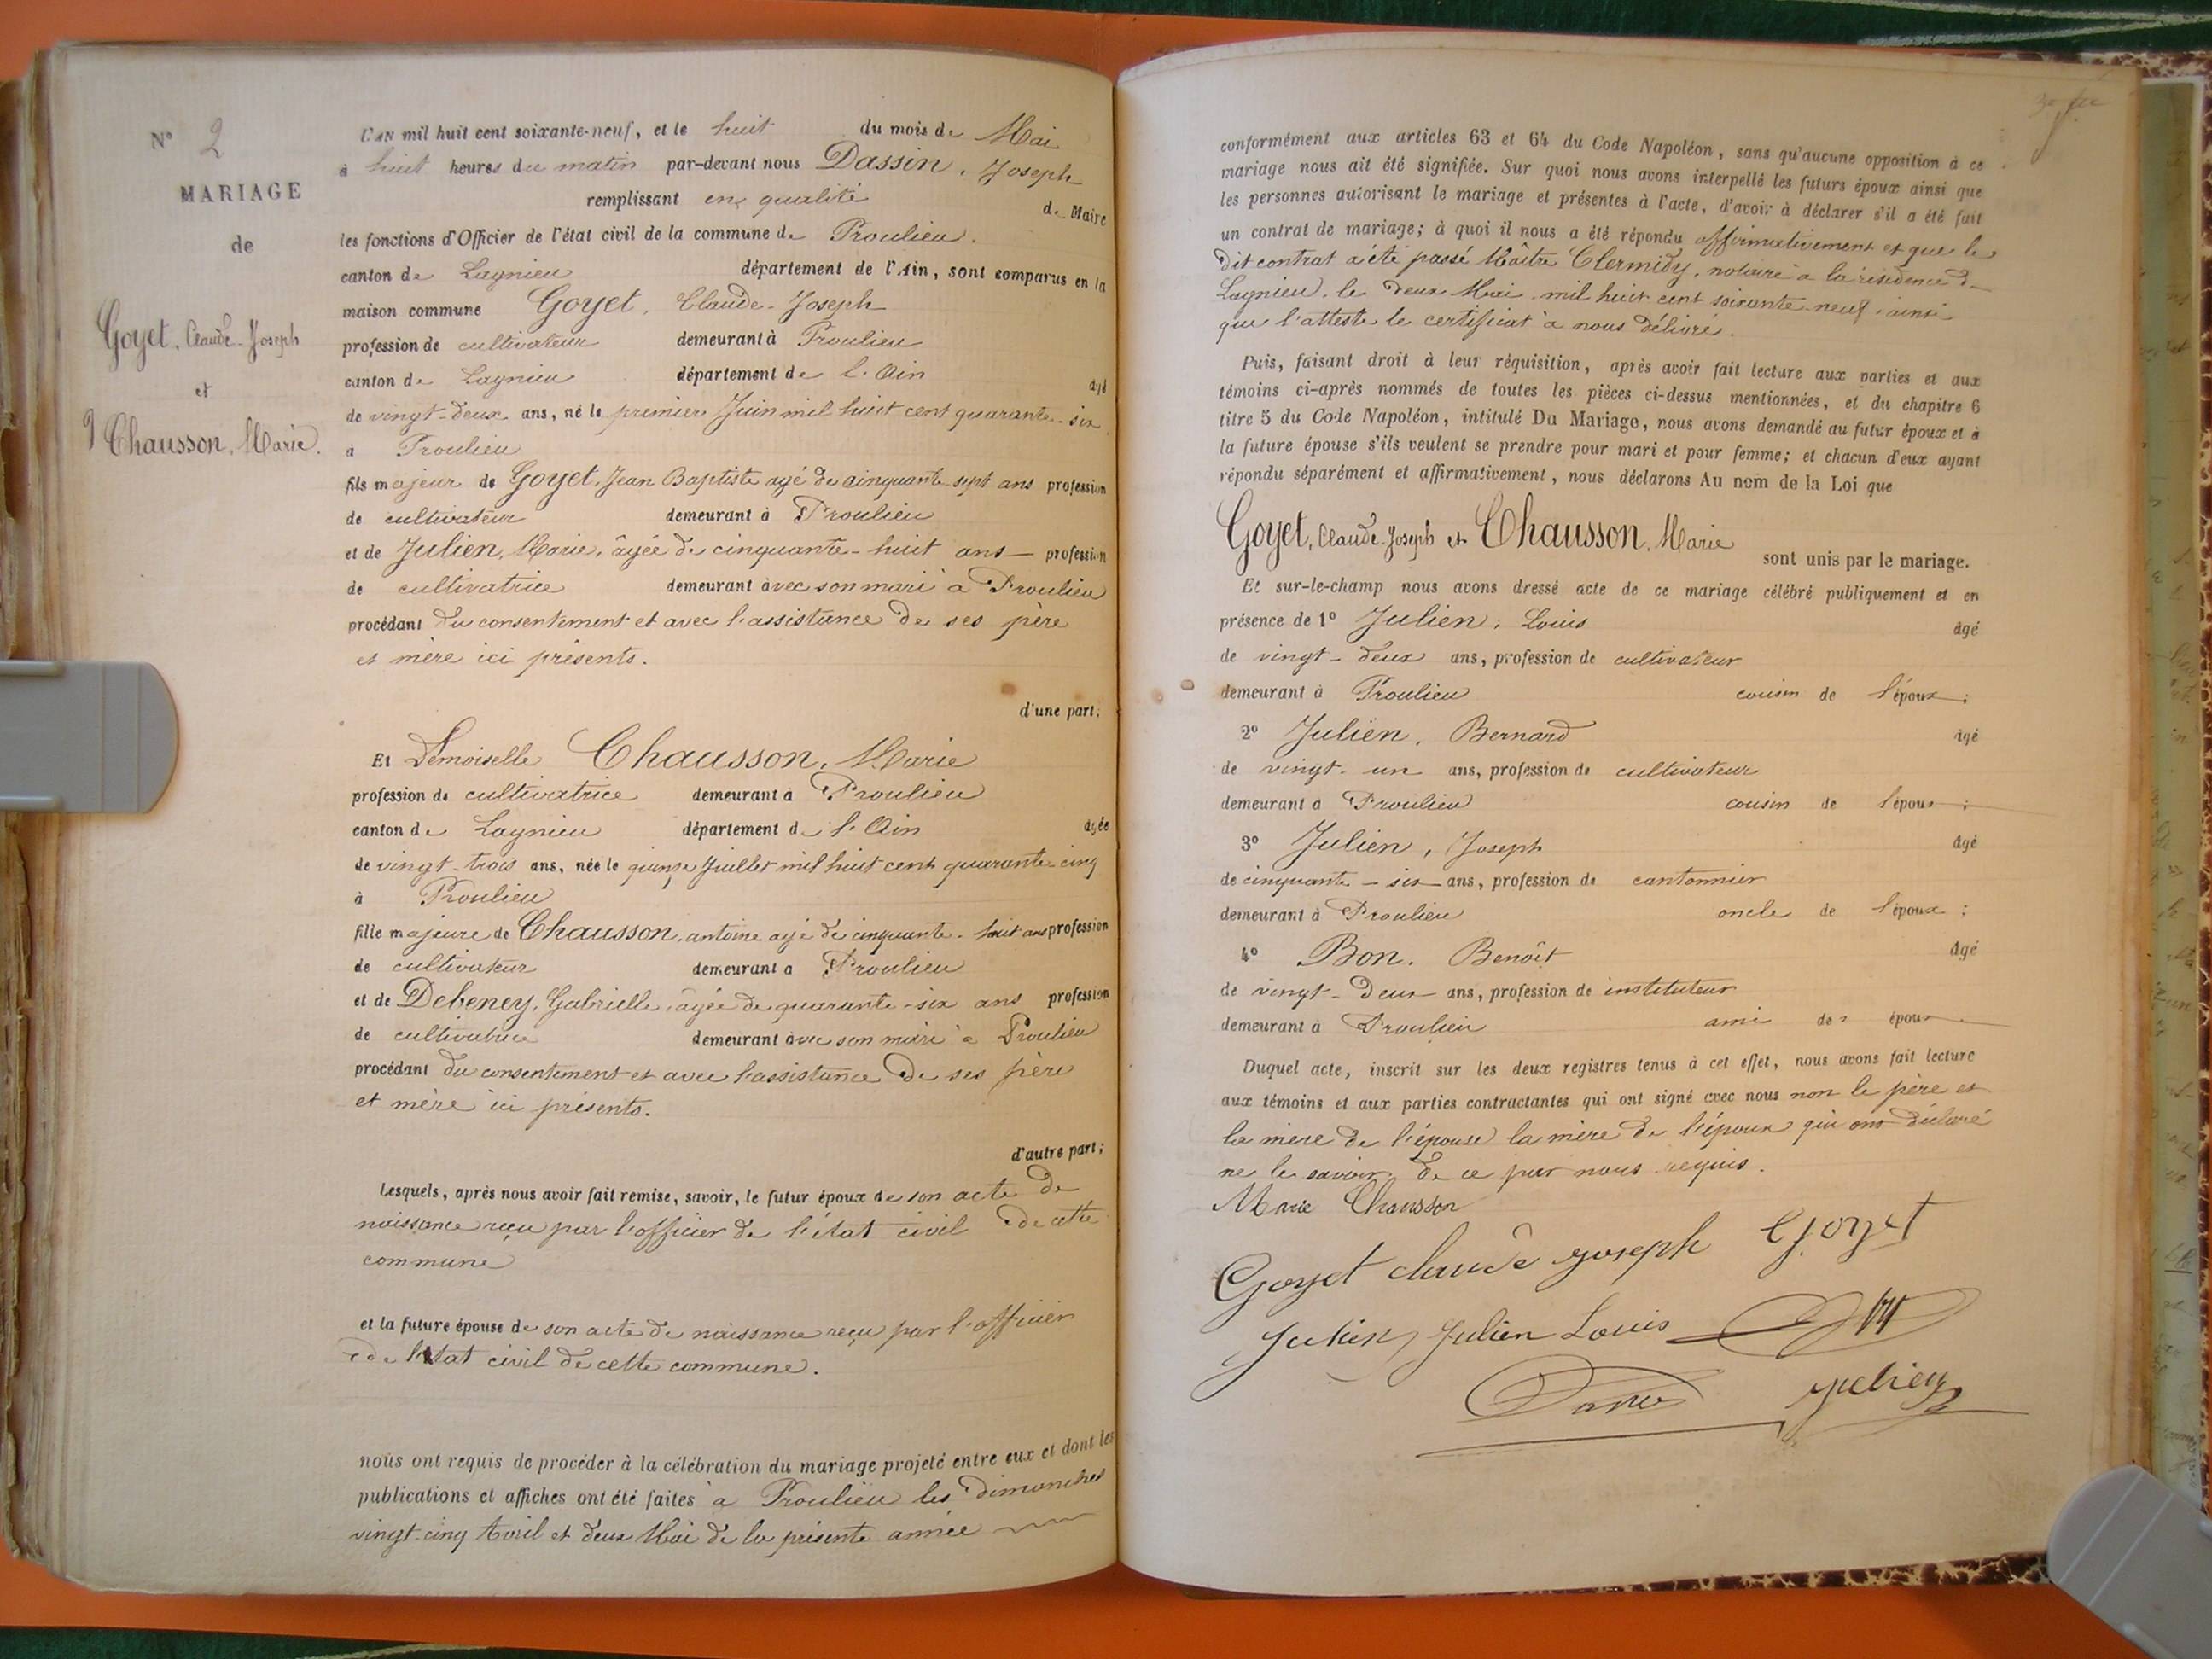 N° 2
MARIAGE
de
Goyet, Claude-Joseph
et
Chausson, Marie.
L'AN mil huit cent soixante-neuf, et le huit du mois de Mai
à huit heures du matin par-devant nous Dassin, Joseph
remplissant en qualité de Maire
les fonctions d'Officier de l'état civil de la commune de Proulieu.
canton de Lagnieu département de l'Ain, sont comparus en la
maison commune Goyet, Claude-Joseph
profession de cultivateur demeurant à Proulieu
canton de Lagnieu département de l'Ain âgé
de vingt-deux ans, né le premier Juin mil huit cent quarante-six
à Proulieu
fils majeur de Goyet, Jean Baptiste agé de cinquante sept ans profession
de cultivateur demeurant à Proulieu
et de Julien, Marie, âgée de cinquante-huit ans profession
de cultivatrice demeurant avec son mari à Proulieu
procédant du consentement et avec l'assistance de ses père
et mère ici présents.
d'une part;
Et Demoiselle Chausson, Marie
profession de cultivatrice demeurant à Proulieu
canton de Lagnieu département de l'Ain âgée
de vingt-trois ans, née le quinze Juillet mil huit cent quarante-cinq
à Proulieu
fille majeure de Chausson, antoine agé de cinquante-huit ans profession
de cultivateur demeurant à Proulieu
et de Debeney, Gabrielle, âgée de quarante-six ans profession
de cultivatrice demeurant avec son mari à Proulieu
procédant du consentement et avec l'assistance de ses père
et mère ici présents.
d'autre part;
Lesquels, après nous avoir fait remise, savoir, le futur époux de son acte de
naissance reçu par l'officier de l'état civil de cette
commune
et la future épouse de son acte de naissance reçu par l'officier
de l'état civil de cette commune.
nous ont requis de procéder à la célébration du mariage projeté entre eux et dont les
publications et affiches ont été faites à Proulieu les dimanches
vingt-cinq Avril et deux Mai de la présente année
conformément aux articles 63 et 64 du Code Napoléon, sans qu'aucune opposition à ce
mariage nous ait été signifiée. Sur quoi nous avons interpellé les futurs époux ainsi que
les personnes autorisant le mariage et présentes à l'acte, d'avoir à déclarer s'il a été fait
un contrat de mariage; à quoi il nous a été répondu affirmativement et que le
dit contrat a été passé Maître Clermidy, notaire à la résidence de
Lagnieu, le deux Mai, mil huit cent soixante-neuf, ainsi
que l'atteste le certificat à nous délivré.
Puis, faisant droit à leur réquisition, après avoir fait lecture aux parties et aux
témoins ci-après nommés de toutes les pièces ci-dessus mentionnées, et du chapitre 6
titre 5 du Code Napoléon, intitulé Du Mariage, nous avons demandé au futur époux et à
la future épouse s'ils veulent se prendre pour mari et pour femme; et chacun d'eux ayant
répondu séparément et affirmativement, nous déclarons Au nom de la Loi que
Goyet, Claude-Joseph et Chausson, Marie
sont unis par le mariage.
Et sur-le-champ nous avons dressé acte de ce mariage célébré publiquement et en
présence de 1° Julien, Louis âgé
de vingt-deux ans, profession de cultivateur
demeurant à Proulieu cousin de l'époux;
2° Julien, Bernard âgé
de vingt-un ans, profession de cultivateur
demeurant à Proulieu cousin de l'époux;
3° Julien, Joseph âgé
de cinquante-six ans, profession de cantonnier
demeurant à Proulieu oncle de l'époux;
4° Bon, Benoît âgé
de vingt-deux ans, profession de instituteur
demeurant à Proulieu ami des époux
Duquel acte, inscrit sur les deux registres tenus à cet effet, nous avons fait lecture
aux témoins et aux parties contractantes qui ont signé avec nous non le père et
la mère de l'épouse la mère de l'époux qui ont déclaré
ne le savoir de ce par nous requis.
Marie Chausson
Goyet claude joseph Goyet
Julien Julien Louis
Julien